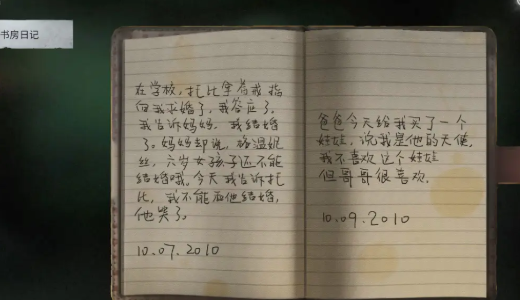 书房日记
在学校，托比拿着戒指
向我求婚了，我答应了，
我告诉妈妈，我结婚
了。妈妈却说，
丝，六岁女孩子还不能
结婚哦。今天我告诉托
比，我不能和他结婚，
他哭了。
10.07.2010
爸爸今天给我买了一个
娃娃，说我是他的天使，
我不喜欢这个娃娃
但哥哥很喜欢.
10.09.2010